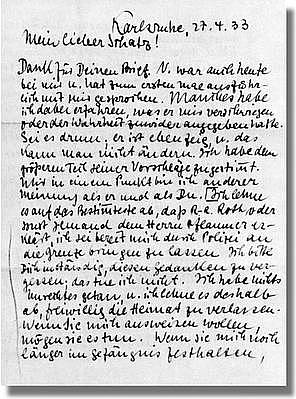 Karlsruhe, 27.4.33
Mein lieber Schatz!
Dank für Deinen Brief. V. war auch heute
bei mir u. hat zum ersten mal ausführ-
lich mit mir gesprochen. Manches habe
ich dabei erfahren, was er mir verschwiegen
oder der Wahrheit zuwider angegeben hatte.
Sei es drum; er ist eben feig, u. da
kann man nicht ändern. Ich habe dem
größeren Teil seiner Vorschläge zugestimmt.
Nur in einem Punkt bin ich anderer
meinung als er und als Du. Ich lehne
es auf das Bestimmteste ab, daß R-a. Roth oder
sonst jemand dem Herrn Pflaumer er-
klärt, ich sei bereit mich durch Polizei an
die Grenze bringen zu lassen. Ich bitte
Dich inständig, diesen Gedanken zu ver-
gessen; das tue ich nicht. Ich habe nichts
Unrechtes getan, u. ich lehne es deshalb
ab, freiwillig die Heimat zu verlassen.
Wenn sie mich ausweisen wollen,
mögen sie es tun. Wenn sie mich noch
länger im gefängnis festhalten,